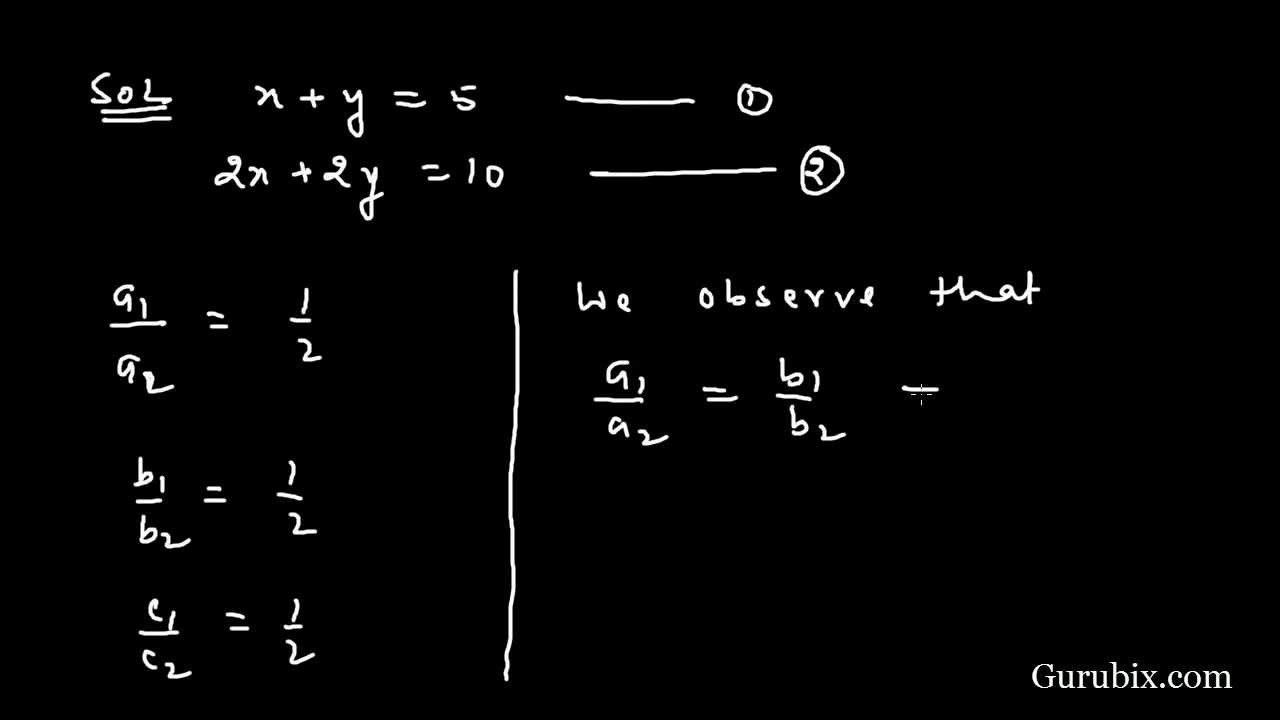 SOL x + y = 5 ——— ①
2x + 2y = 10 ——— ②
a₁/a₂ = 1/2
b₁/b₂ = 1/2
c₁/c₂ = 1/2
We observe that
a₁/a₂ = b₁/b₂ =
Gurubix.com